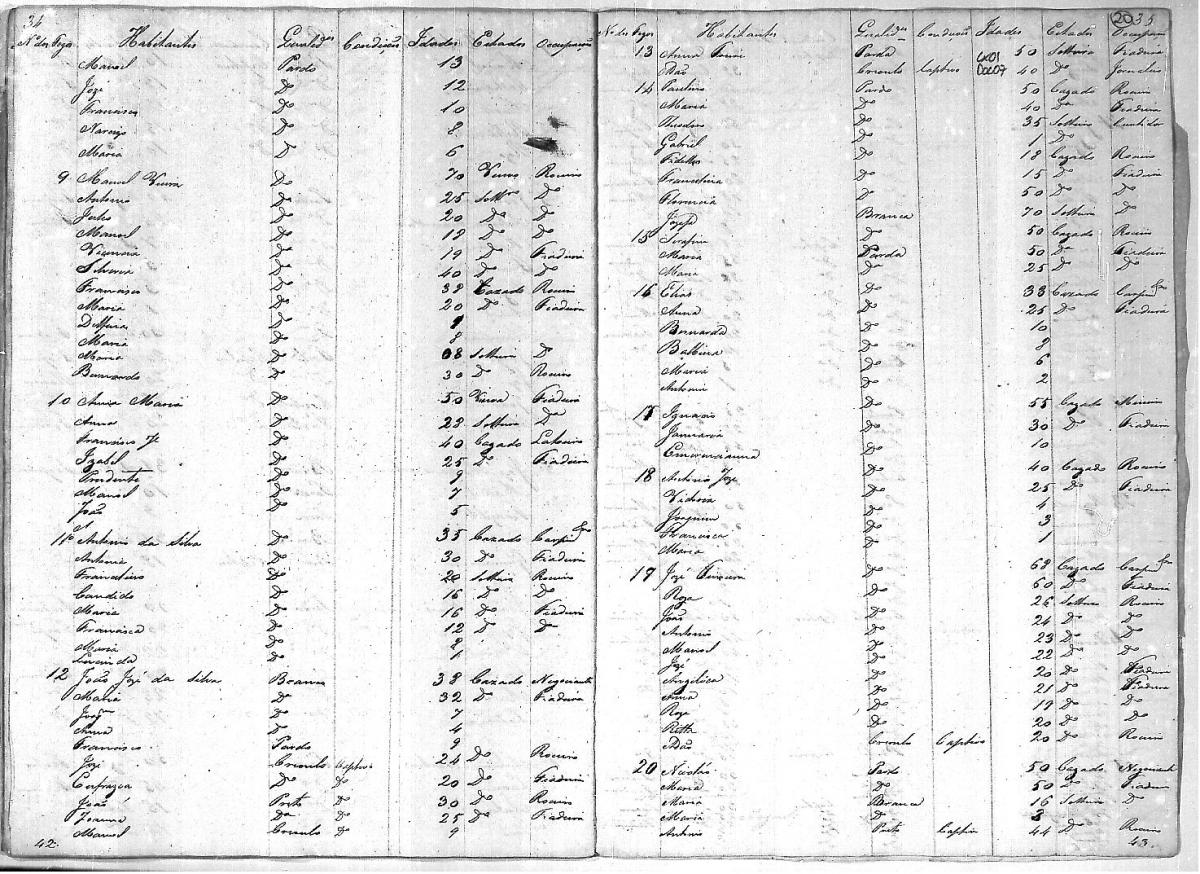 34
Nº dos Fogos Habitantes Qualidades Condição Idades Estados Occupação
Manoel Pardo 13
Jozé Dº 12
Francisco Dº 10
Narcizo Dº 8
Maria Dº 6
9 Manoel Vieira Dº 70 Viuvo Roceiro
Antonio Dº 25 Soltrº Dº
Dº 20 Dº Dº
Manoel Dº 18 Dº Dº
Dº 19 Dº Fiadeira
Silveria Dº 40 Dº Dº
Francisco Dº 38 Cazado Roceiro
Maria Dº 20 Dº Fiadeira
Delfina Dº 9
Maria Dº 8
Maria Dº 08 Solteira Dº
Bernardo Dº 30 Dº Roceiro
10 Anna Maria Dº 50 Viuva Fiadeira
Anna Dº 22 Solteira Dº
Francisco Dº 40 Cazado
Izabel Dº 25 Dº Fiadeira
Prudente Dº 9
Manoel Dº 7
João Dº 5
11 Antonio da Silva Dº 35 Cazado
Antonia Dº 30 Dº Fiadeira
Francelino Dº 20 Solteiro Roceiro
Candido Dº 16 Dº
Maria Dº 16 Dº Fiadeira
Francisca Dº 12 Dº Dº
Maria Dº 2
Dº 1
12 João Jozé da Silva Branco 38 Cazado Negociante
Maria Dº 32 Dº Fiadeira
Dº 7
Anna Dº 4
Francisco Pardo 9
Jozé Crioulo Captivo 24 Dº Roceiro
Dº Dº 20 Dº Fiadeira
João Preto Dº 30 Dº Roceiro
Joanna Dª Dº 25 Dº Fiadeira
Manoel Crioulo Dº 9
42.
20 35
Nº dos Fogos Habitantes Qualidades Condição Idades Estados Occupam
Cx01
Doc07
13 Anna Parda 50 Solteira Fiadeira
Adão Crioulo Captivo 40 Dº Jornaleiro
14 Paulino Pardo 50 Cazado Roceiro
Maria Dº 40 Dº Fiadeira
Theodoro Dº 35 Solteiro
Gabriel Dº 1 Dº
Fidelis Dº 18 Cazado Roceiro
Francelina Dº 15 Dº Fiadeira
Florencia Dº 50 Dº Dº
Jozefa Branca 70 Solteira Dº
15 Serafim Dº 50 Cazado Roceiro
Maria Parda 50 Dº Fiadeira
Maria Dº 25 Dº Dº
16 Elias Dº 33 Cazado
Anna Dº 25 Dº Fiadeira
Bernarda Dº 10
Balbina Dº 8
Maria Dº 6
Antonio Dº 2
17 Ignacio Dº 55 Cazado Mineiro
Januaria Dº 30 Dº Fiadeira
Emerenciana Dº 10
18 Antonio Jozé Dº 40 Cazado Roceiro
Victoria Dº 25 Dº Fiadeira
Joaquim Dº 4
Francisca Dº 3
Maria Dº 1
19 Jozé Dº 68 Cazado
Roza Dº 60 Dº Fiadeira
João Dº 26 Solteiro Roceiro
Antonio Dº 24 Dº Dº
Manoel Dº 23 Dº Dº
Jozé Dº 22 Dº Dº
Angelica Dº 20 Dº Fiadeira
Anna Dº 21 Dº Fiadeira
Roza Dº 19 Dº Dº
Ritta Dº 20 Dº Dº
Adão Crioulo Captivo 20 Dº Roceiro
20 Pardo 50 Cazado Negociante
Maria Dº 50 Dº Fiadeira
Maria Branca 16 Solteira Dº
Maria Dº 3
Antonio Preto Captivo 44 Dº Roceiro
43.